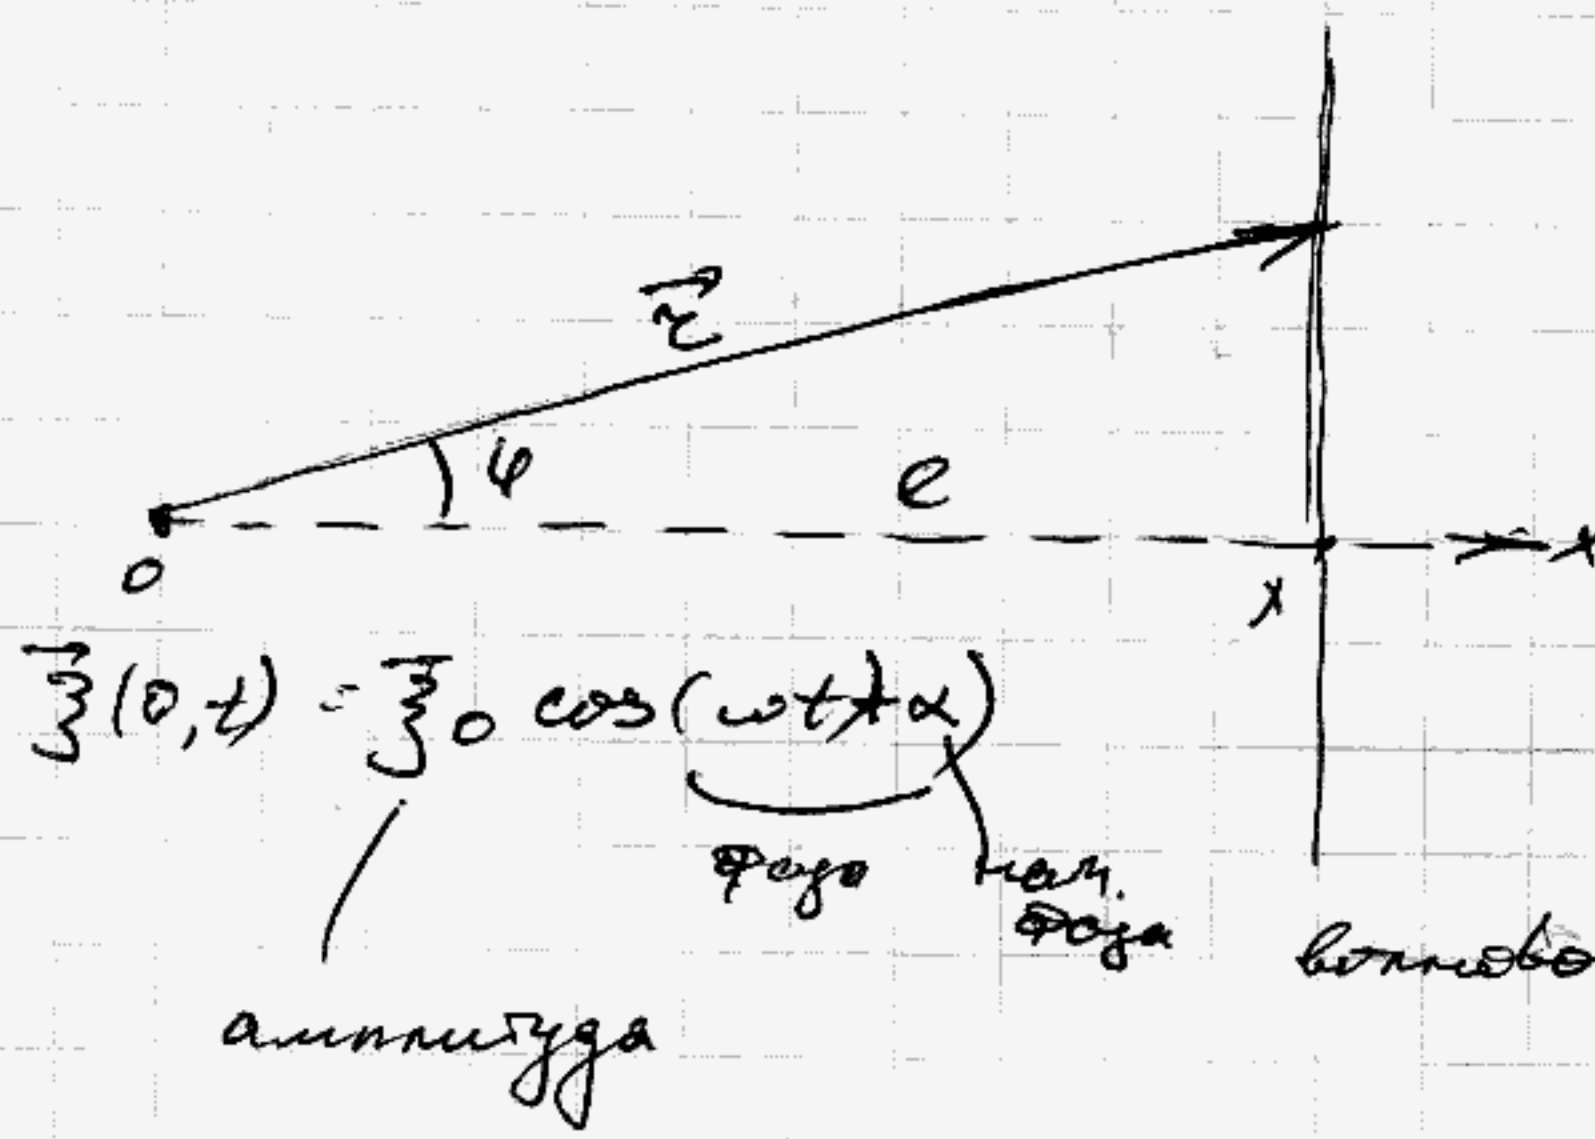 r⃗
φ
ℓ
0
x
x
ξ⃗(0,t) = ξ⃗₀ cos(ωt+α)
фаза
нач.
фаза
амплитуда